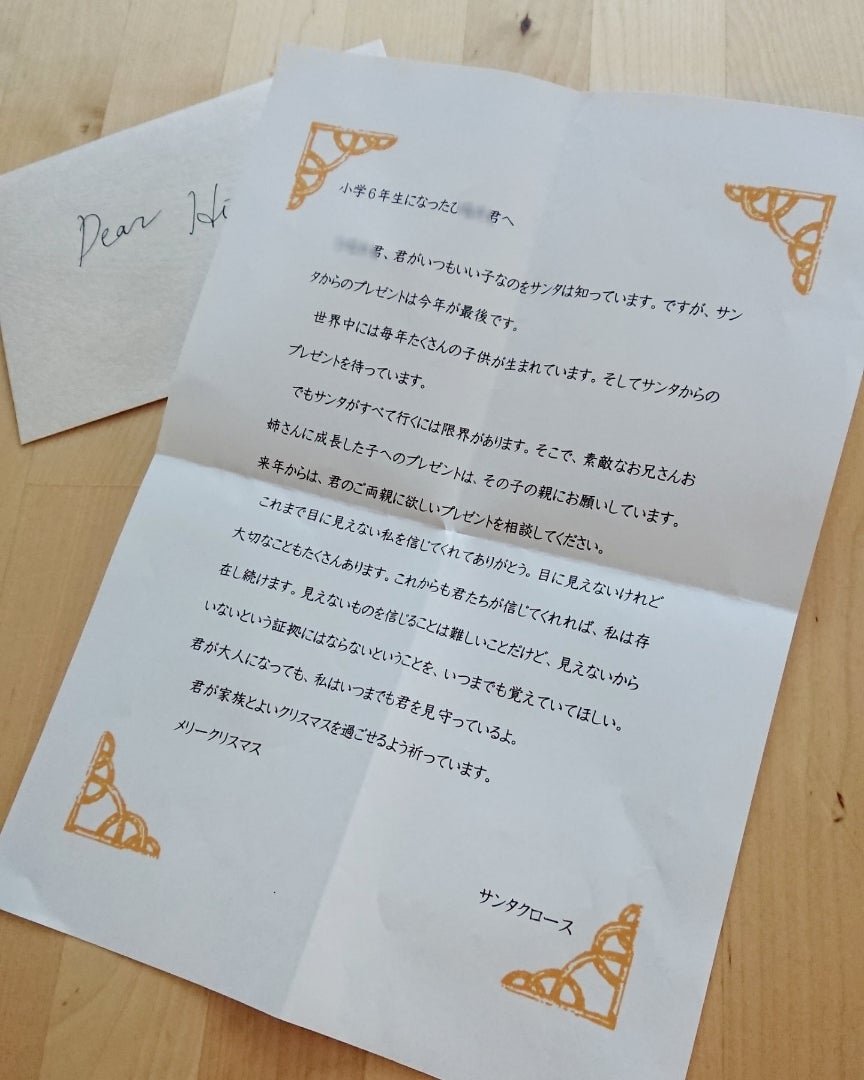 Dear Hi
小学6年生になったひ 君へ
君、君がいつもいい子なのをサンタは知っています。ですが、サン
タからのプレゼントは今年が最後です。
世界中には毎年たくさんの子供が生まれています。そしてサンタからの
プレゼントを待っています。
でもサンタがすべて行くには限界があります。そこで、素敵なお兄さんお
姉さんに成長した子へのプレゼントは、その子の親にお願いしています。
来年からは、君のご両親に欲しいプレゼントを相談してください。
これまで目に見えない私を信じてくれてありがとう。目に見えないけれど
大切なこともたくさんあります。これからも君たちが信じてくれれば、私は存
在し続けます。見えないものを信じることは難しいことだけど、見えないから
いないという証拠にはならないということを、いつまでも覚えていてほしい。
君が大人になっても、私はいつまでも君を見守っているよ。
君が家族とよいクリスマスを過ごせるよう祈っています。
メリークリスマス
サンタクロース